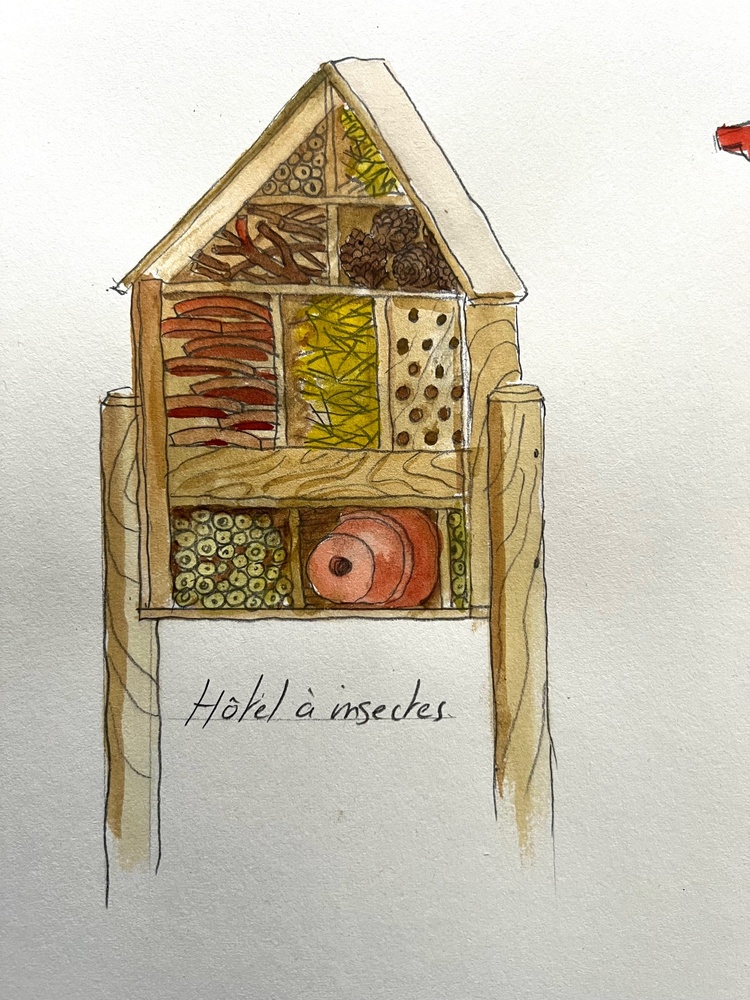 Hôtel à insectes